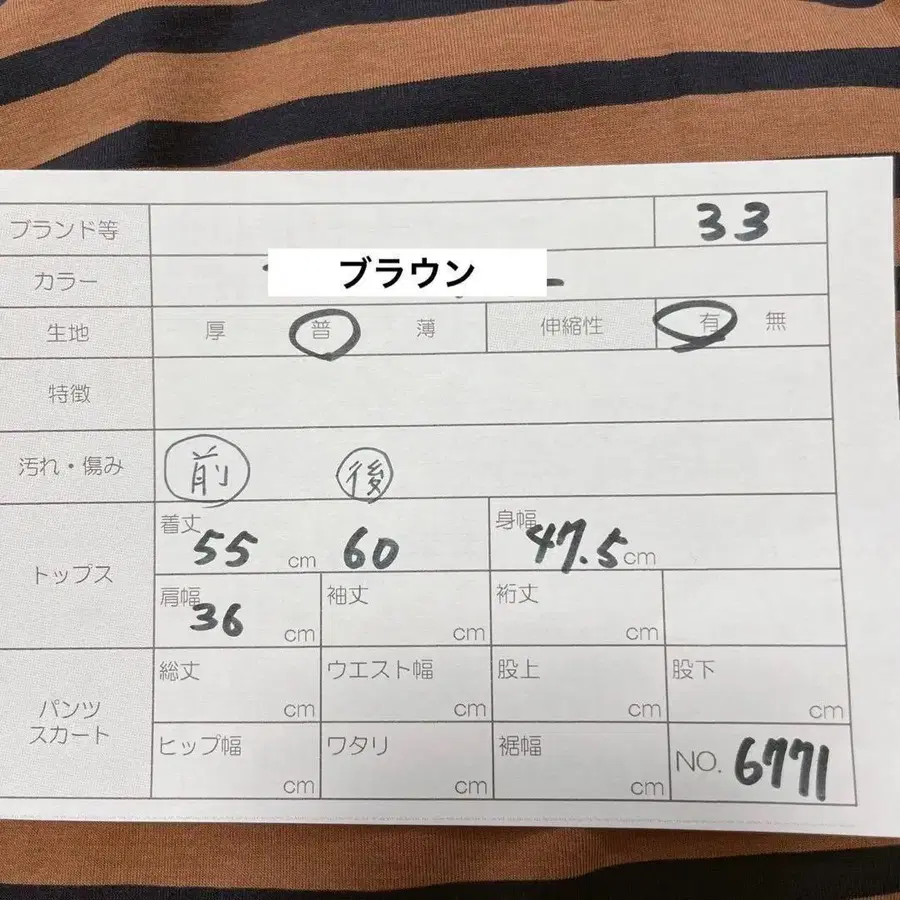 ブランド等 33
カラー ブラウン
生地 厚 普 薄 伸縮性 有 無
特徴
汚れ・傷み 前 後
トップス
着丈 55 cm 60 身幅 47.5 cm
肩幅 36 cm 袖丈 cm 裄丈 cm
パンツ
スカート
総丈 cm ウエスト幅 cm 股上 cm 股下 cm
ヒップ幅 cm ワタリ cm 裾幅 cm NO. 6771